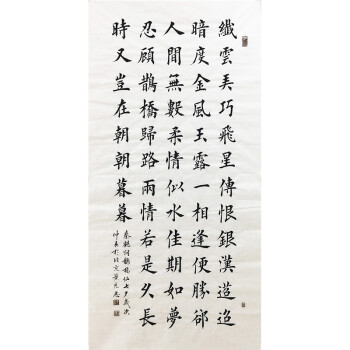 纖雲弄巧飛星傳恨銀漢迢迢
暗度金風玉露一相逢便勝卻
人間無數柔情似水佳期如夢
忍顧鵲橋歸路兩情若是久長
時又豈在朝朝暮暮
秦觀詞鵲橋仙七夕歲次
於北京